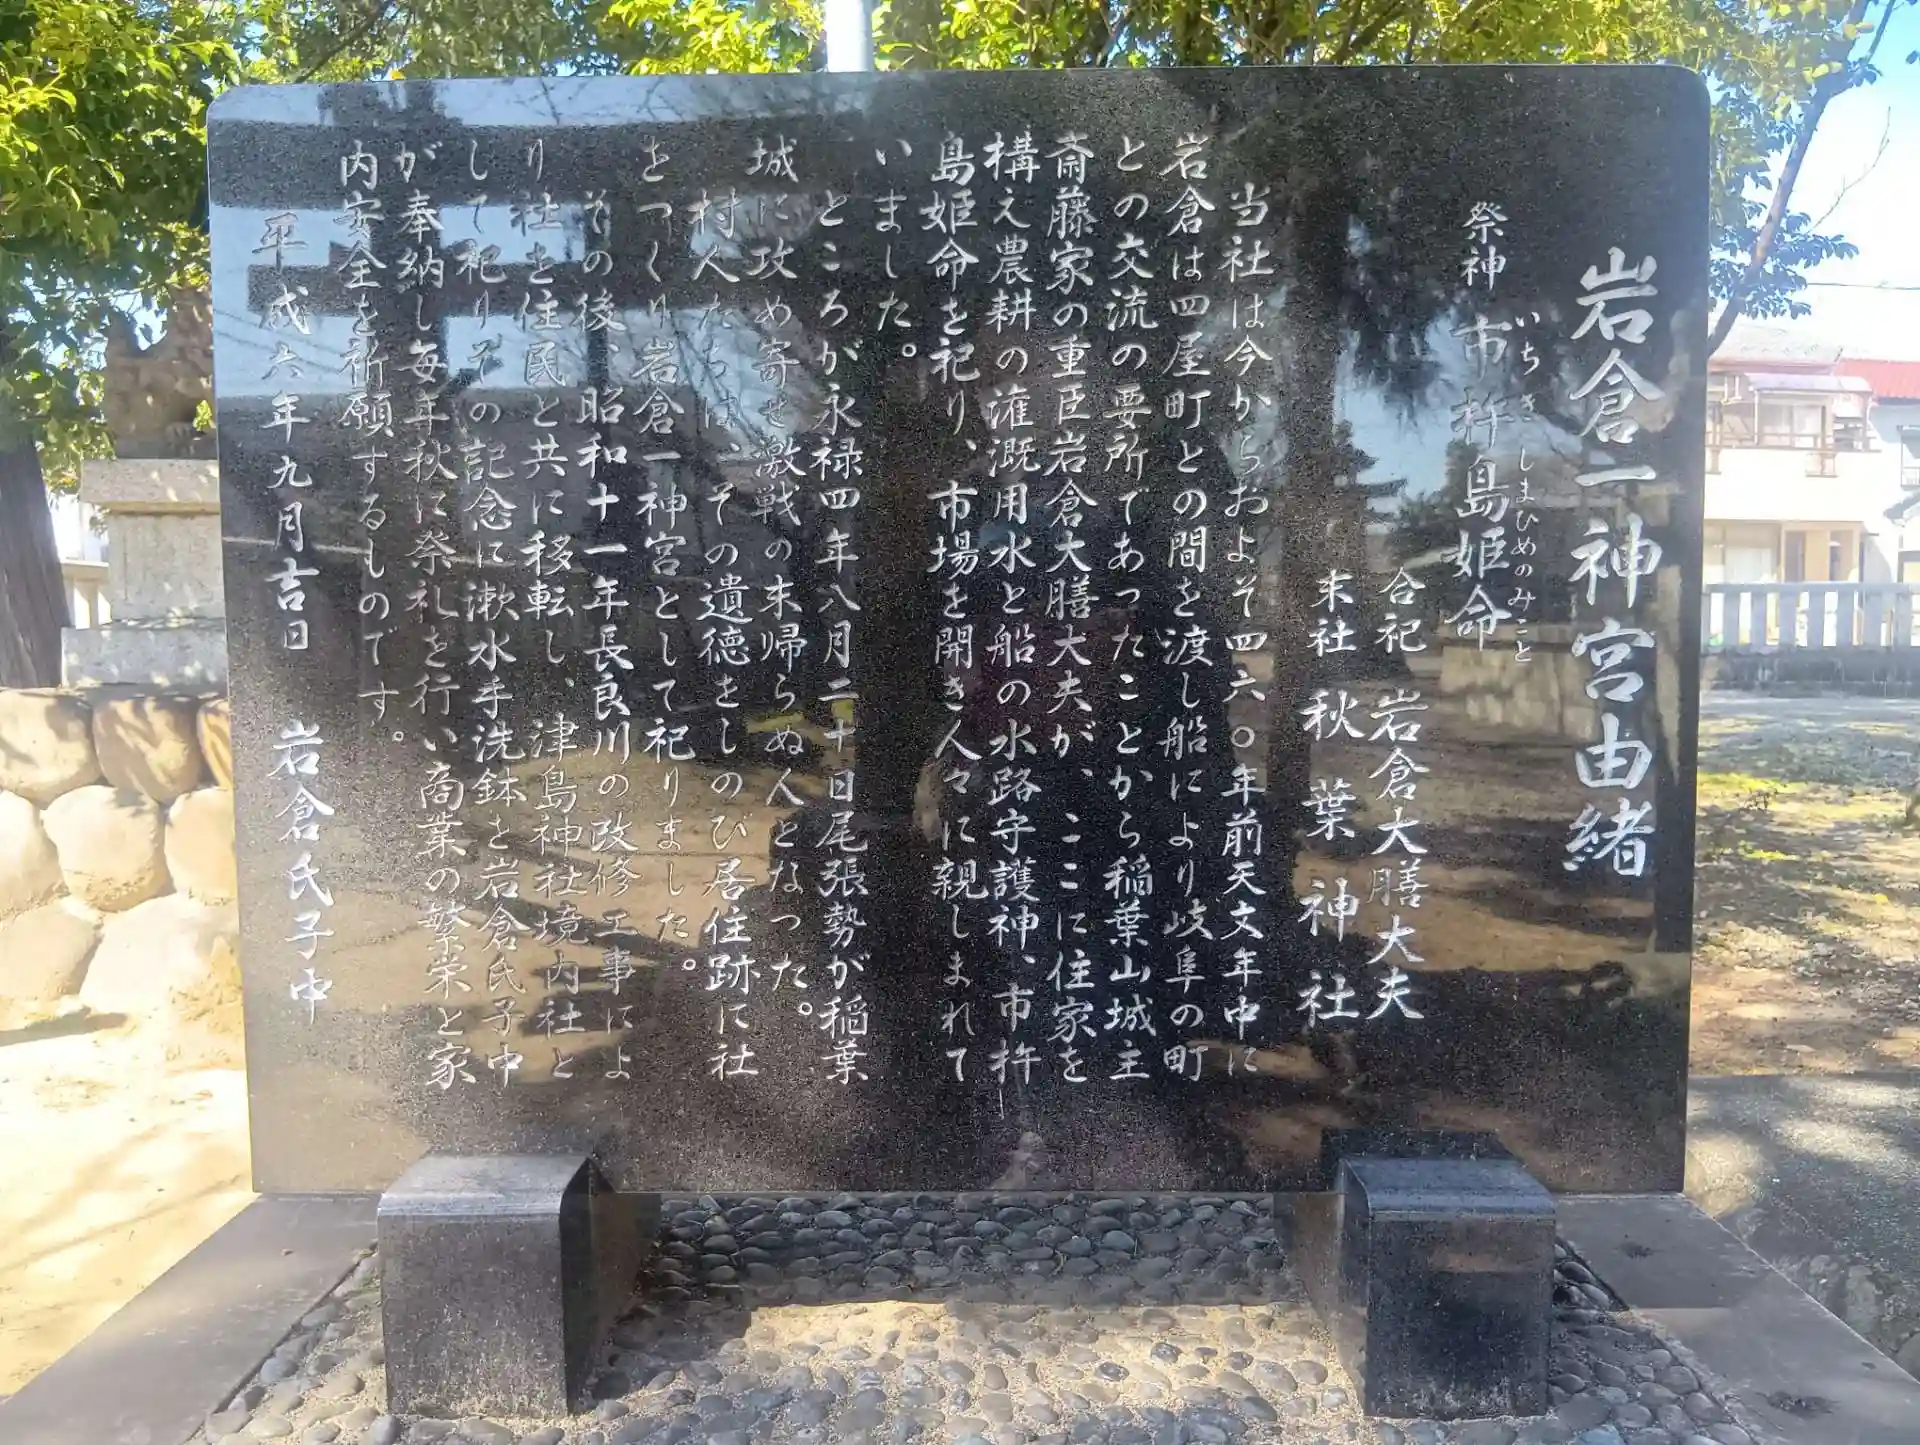 岩倉一神宮由緒
祭神 市杵島姫命
いちきしまひめのみこと
合祀 岩倉大膳大夫
末社 秋葉神社
当社は今からおよそ四六〇年前天文年中に
岩倉は四屋町との間を渡し船により岐阜の町
との交流の要所であったことから稲葉山城主
斎藤家の重臣岩倉大膳大夫が、ここに住家を
構え農耕の灌漑用水と船の水路守護神、市杵
島姫命を祀り、市場を開き人々に親しまれて
いました。
ところが永禄四年八月二十日尾張勢が稲葉
城に攻め寄せ激戦の末帰らぬ人となった。
村人たちは、その遺徳をしのび居住跡に社
をつくり岩倉一神宮として祀りました。
その後、昭和十一年長良川の改修工事によ
り社を住民と共に移転し、津島神社境内社と
して祀りその記念に漱水手洗鉢を岩倉氏子中
が奉納し毎年秋に祭礼を行い商業の繁栄と家
内安全を祈願するものです。
平成六年九月吉日 岩倉氏子中